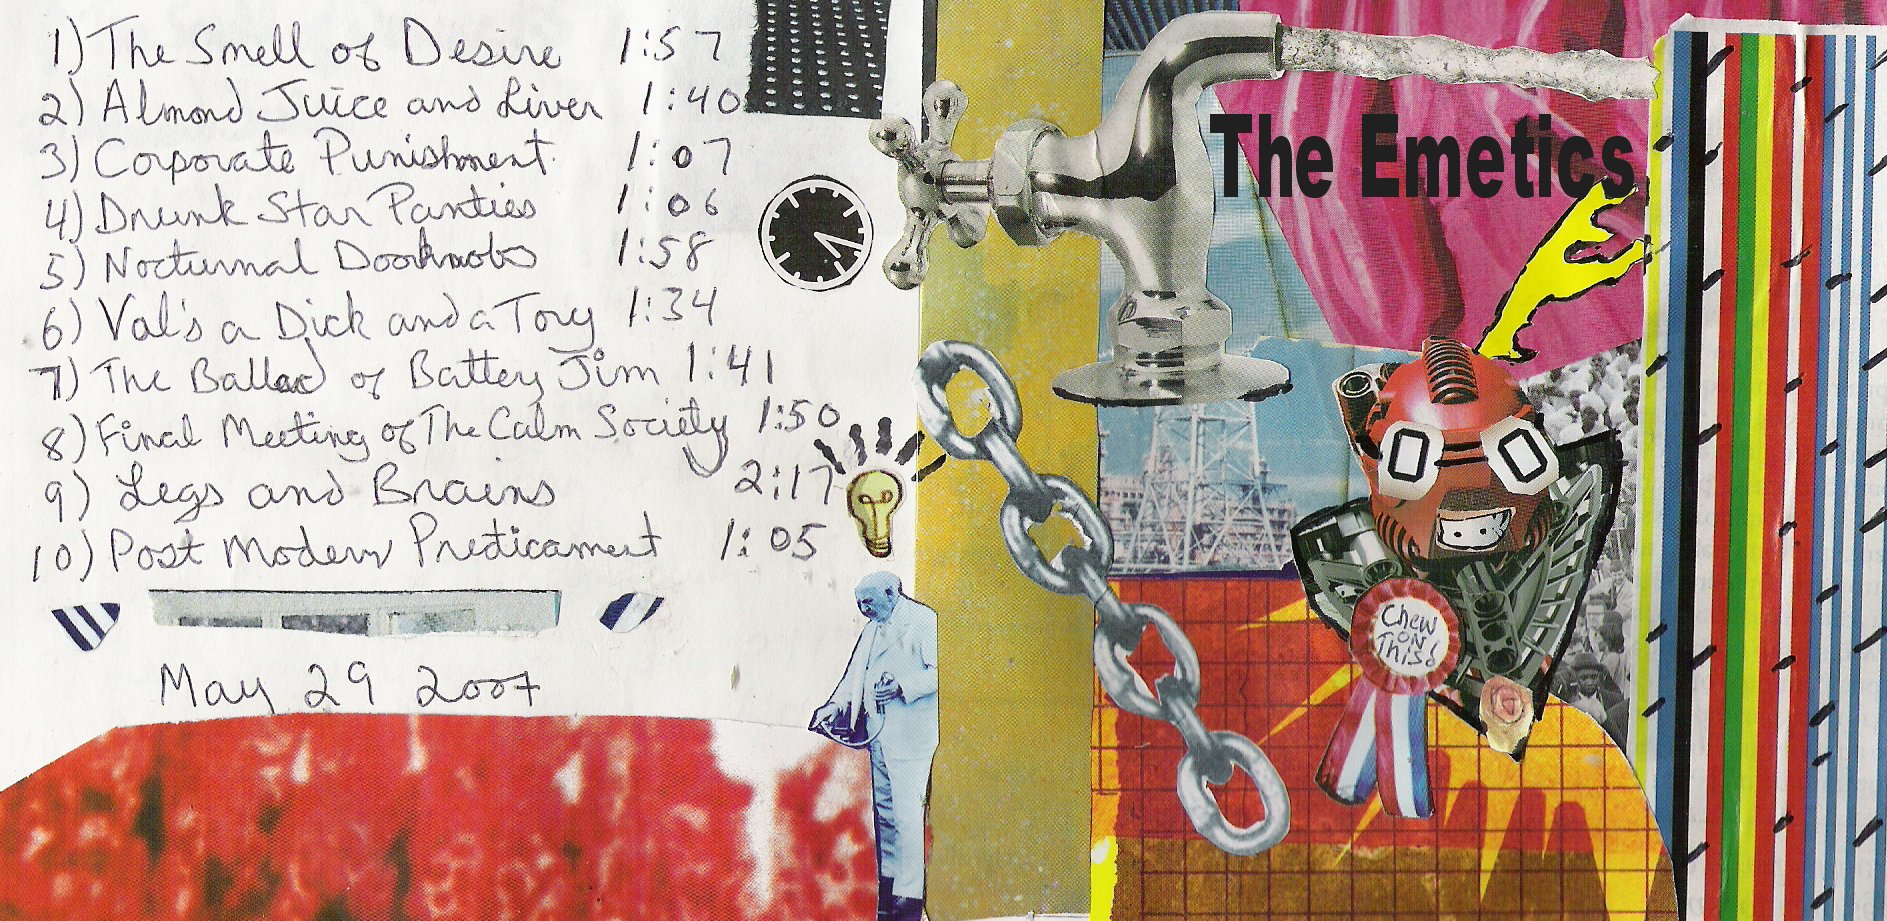 1) The Smell of Desire 1:57
2) Almond Juice and Liver 1:40
3) Corporate Punishment 1:07
4) Drunk Star Parties 1:06
5) Nocturnal Doorknobs 1:58
6) Val's a Dick and a Tory 1:34
7) The Ballad of Battery Jim 1:41
8) Final Meeting of The Calm Society 1:50
9) Legs and Brains 2:17
10) Post Modern Predicament 1:05
May 29 2007
The Emetics
0 0
Chew
ON
This!